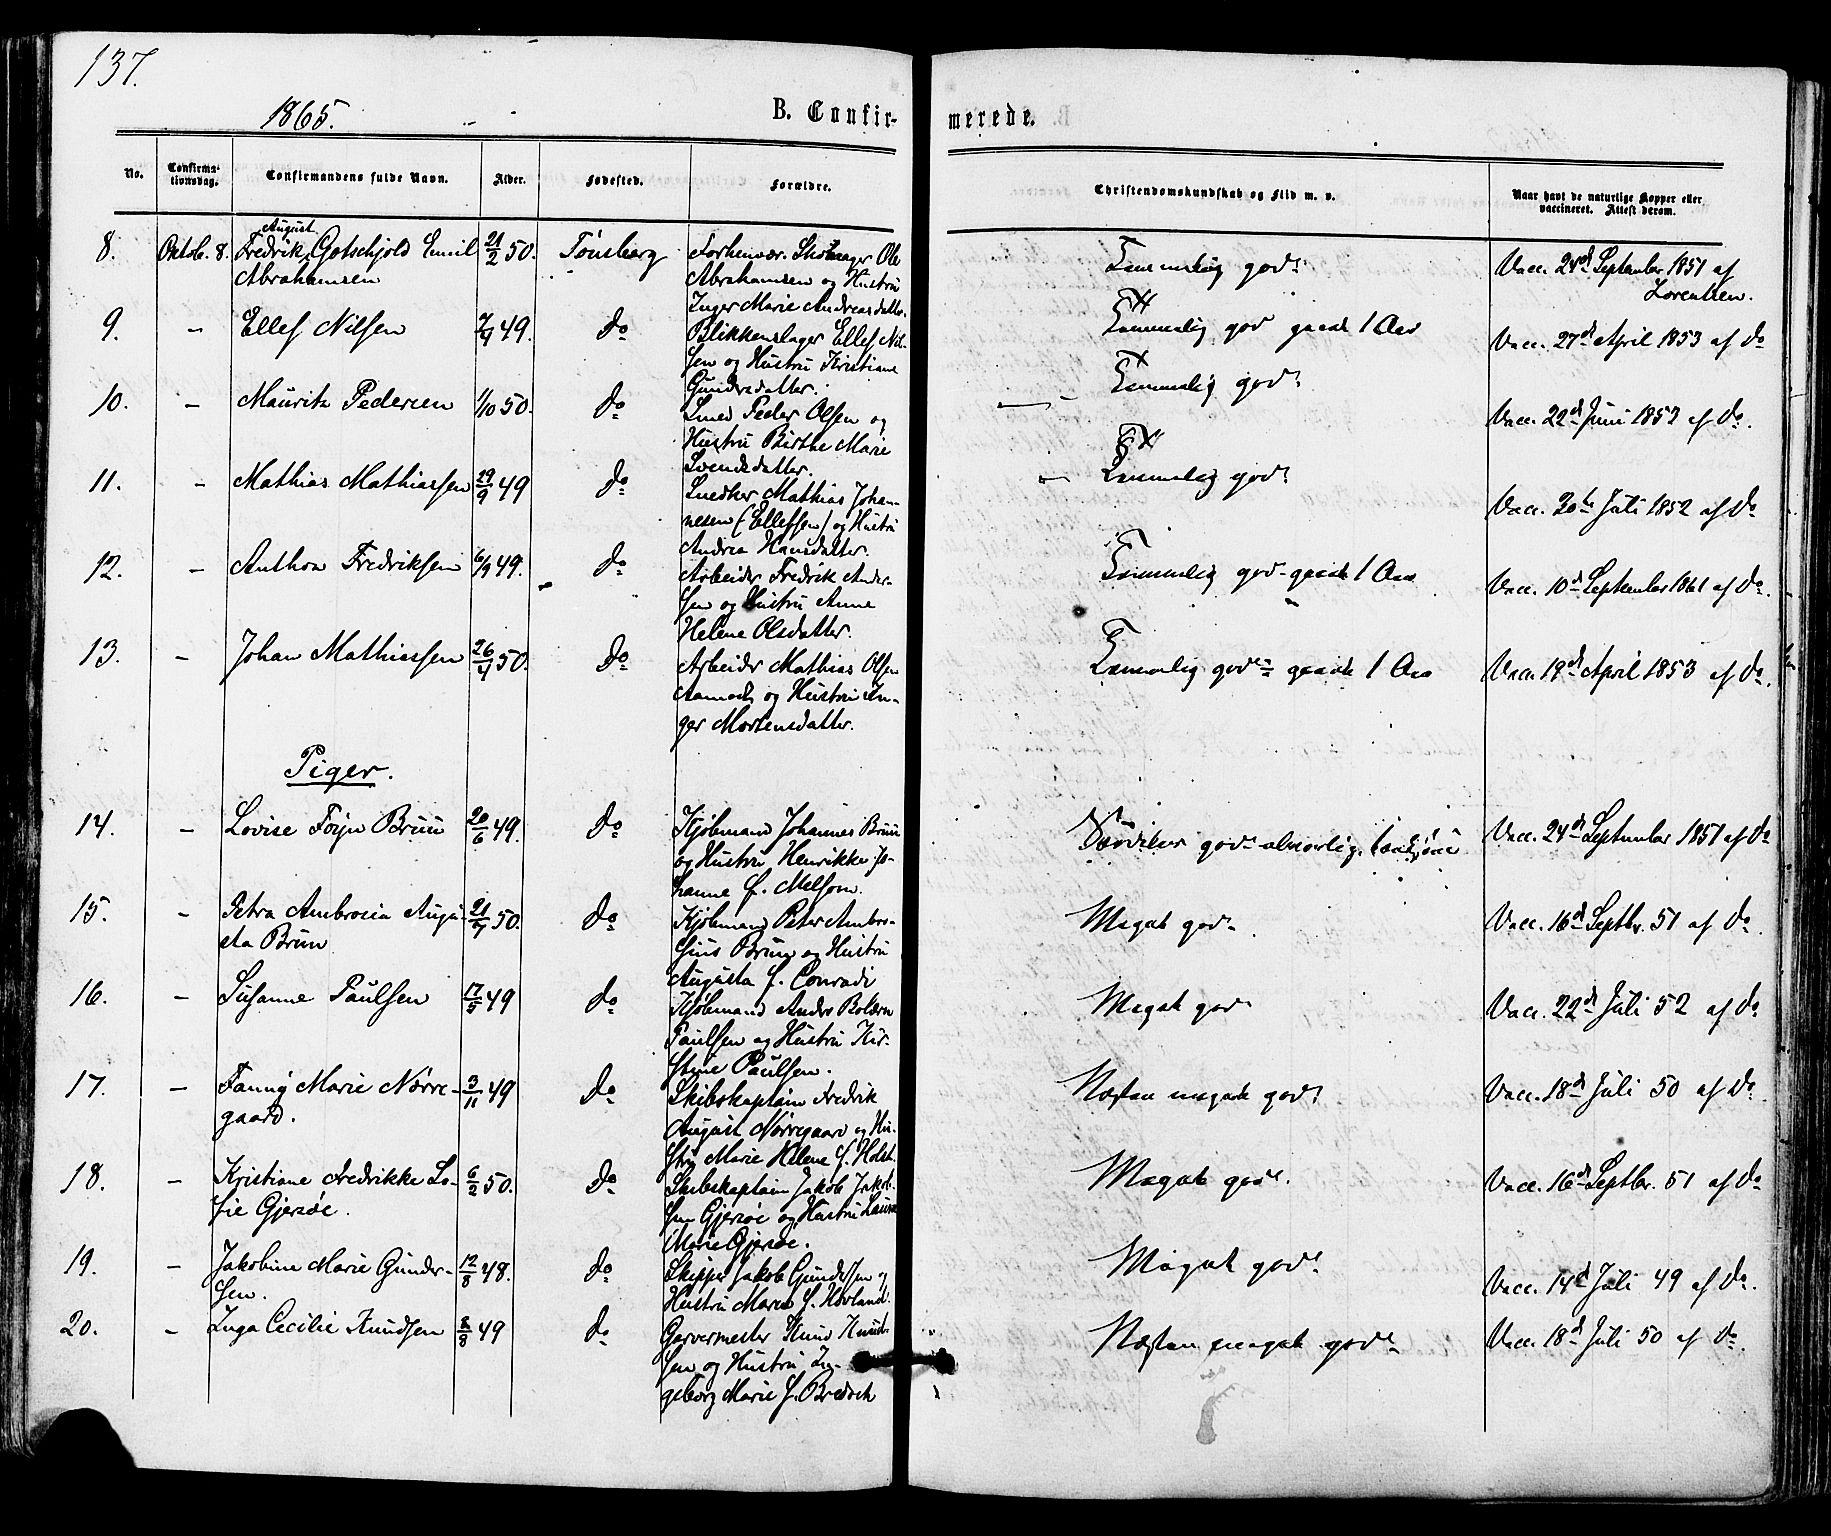 137.
1865.
B. Confir-
merede.
No.
Confirma-
tionsdag.
Confirmandens fulde Navn.
Alder.
Fødested.
Forældre.
Christendomskundskab og Flid m. v.
Naar havt de naturlige Kopper eller
vaccineret. Attest derom.
8. Oktob. 8. Fredrik August Gotschjold Emil 21/2 50. Tönsberg Forhenvær. Ole
Abrahamsen
Abrahamsen og Hustru
Inger Marie Andreasdatter.
Temmelig god
Vacc. 24de September 1851 af
Lorentzen.
9. - Ellef Nilsen 49. do Blikkenslager Ellef Nil-
sen og Hustru Kristiane
Gundersdatter.
Temmelig god gaaet 1 Aar
Vacc. 27de April 1853 af do
10. - Mauritz Pedersen 1/10 50. do
Smed Peder Olsen og
Hustru Birthe Marie
Svendsdatter.
Temmelig god
Vacc. 22de Juni 1852 af do.
11. - Mathias Mathiassen 29/9 49 do
Snedker Mathias Johan-
nesen (Ellefsen) og Hustru
Andrea Hansdatter.
Temmelig god
Vacc. 20de Juli 1852 af do
12. - Anthon Fredriksen 6/9 49. do
Arbeider Fredrik Ander-
sen og Hustru Anne
Helene Olsdatter.
Temmelig god gaaet 1 Aar
Vacc. 10de September 1861 af do.
13. - Johan Mathiassen 26/4 50. do
Arbeider Mathias Olsen
Aamodt og Hustru In-
ger Mortensdatter.
Temmelig god gaaet 1 Aar
Vacc. 19de April 1853 af do.
Piger.
14. - Lovise Foyn Bruu 20/6 49. do
Kjøbmand Johannes Bruu
og Hustru Henrikke Jo-
hanne f. Melsom.
Særdeles god alvorlig
Vacc. 24de September 1851 af do
15. - Petra Ambrosia Augu-
sta Bruu 50. do
Kjøbmand Peter Ambro-
sius Bruu og Hustru
Augusta f. Conradi
Meget god
Vacc. 16de Septbr. 51 af do
16. - Susanne Paulsen 17/5 49 do
Kjøbmand Anders Bolærn
Paulsen og Hustru Kir-
stine Paulsen.
Meget god
Vacc. 22de Juli 52 af do
17. - Fanny Marie Nörre-
gaard. 3/11 49 do
Skibskaptain Fredrik
August Nörregaard og Hu-
stru Marie Helene f. Holst
Næsten meget god
Vacc. 18de Juli 50 af do
18. - Kristiane Fredrikke So-
fie Gjersöe. 6/2 50. do
Skibskaptain Jakob Jakob-
sen Gjersöe og Hustru Laura
Marie Gjersöe.
Meget god.
Vacc. 16de Septbr. 51 af do
19. - Jakobine Marie Gunder-
sen. 12/8 48. do
Skipper Jakob Gundersen og
Hustru Maren f. Hovland.
Meget god
Vacc. 14de Juli 49 af do.
20. - Inga Cecilie Knudsen 8/8 49 do
Garvermester Knud Knud-
sen og Hustru In-
geborg Marie f. Bredoch
Næsten meget god
Vacc. 18de Juli 50 af do.